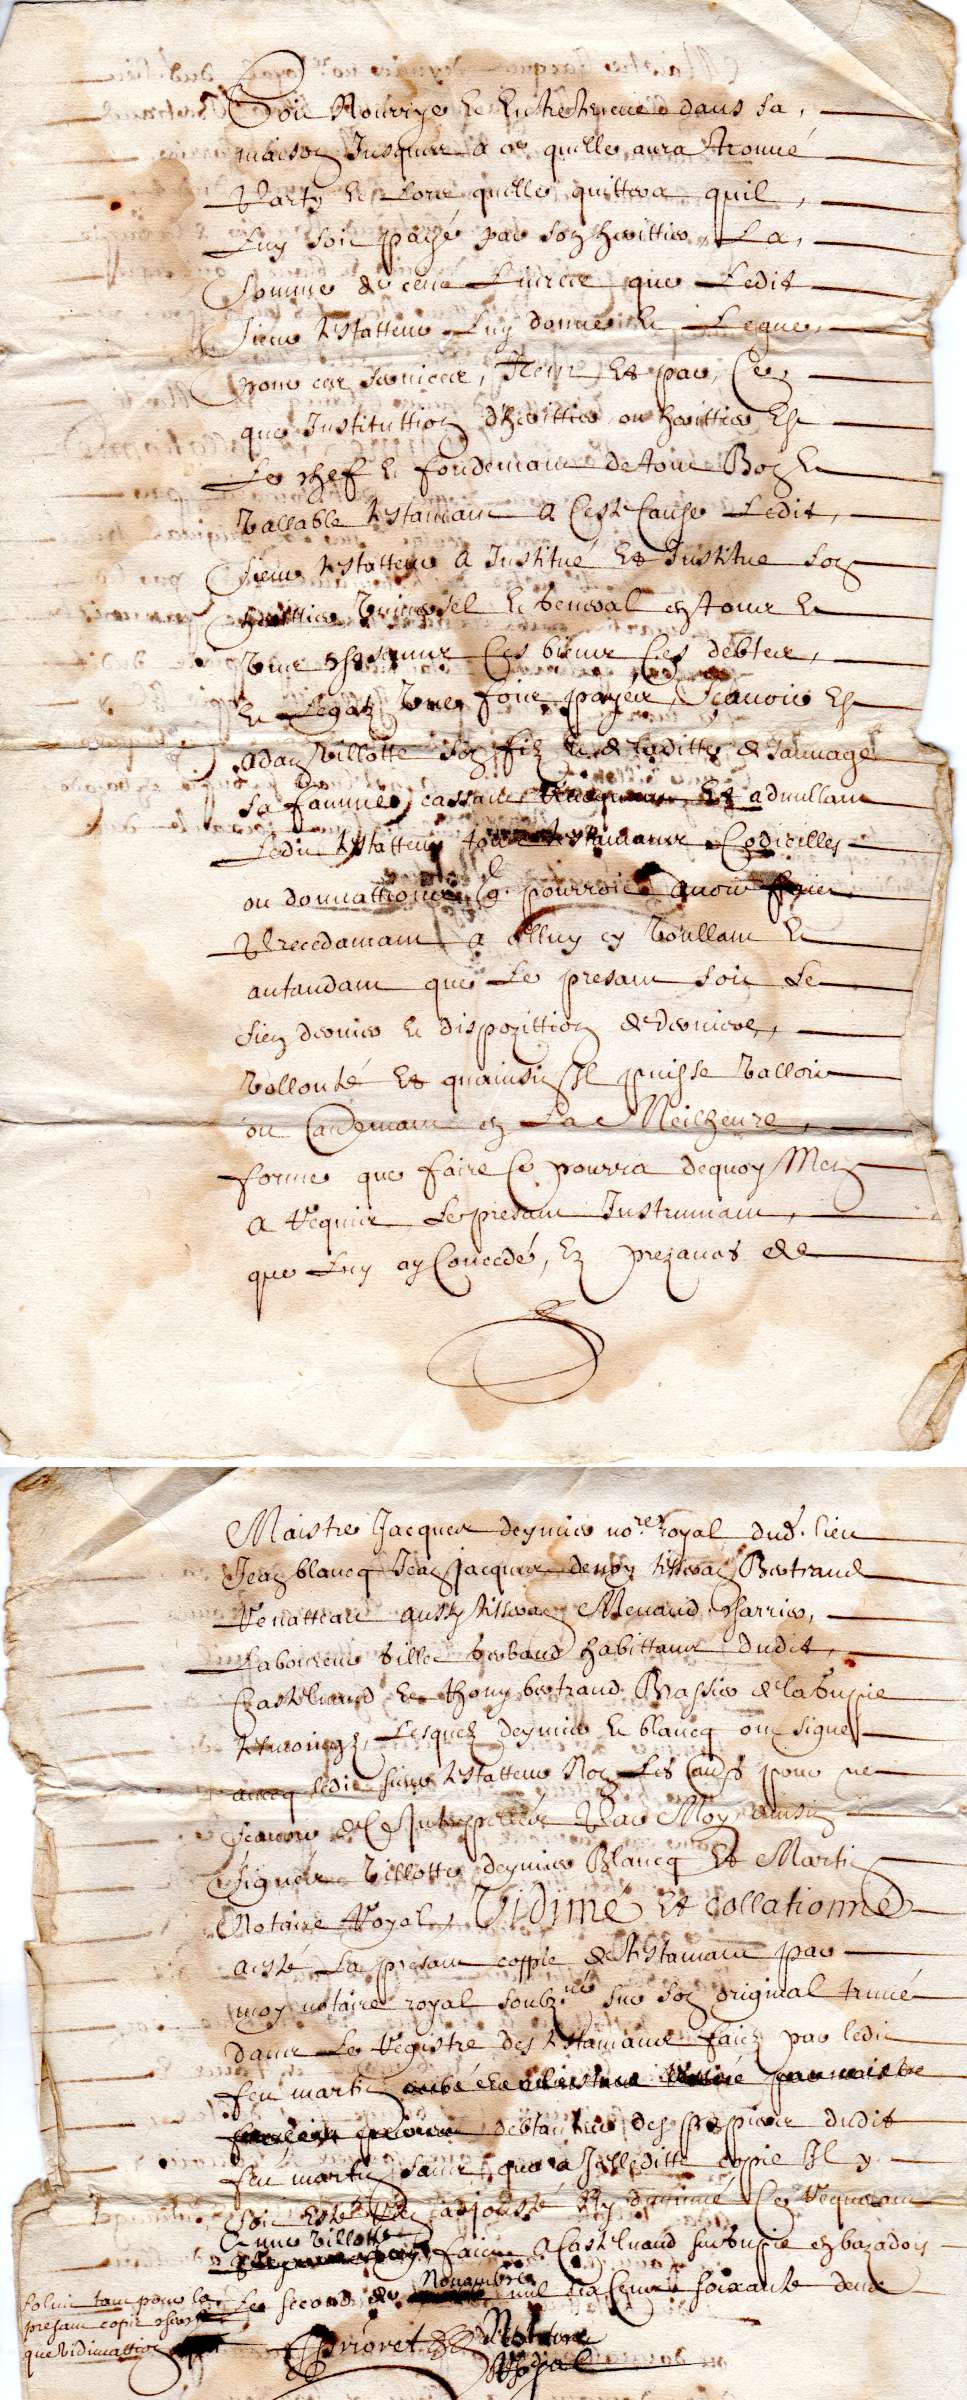 Soit Nourrye et Entretenue dans sa
maison Jusques a ce quelle aura trouvé
Party et Lors quelle quittera quil
Luy soit payé par son herittier La
somme de cent Livres que Ledit
sieur testatteur Luy donne et Legue
pour ces services, Item Et par Ce
que Instituttion d'herittier ou herittiere Est
Le chef et fondemant de tout Bon et
Vallable testamant a Ceste Cause Ledit
sieur testatteur a Institué Et Institue son
herittier Universel et general en tous et
Uns chescuns Ces biens Ces debtes
et Legatz Une fois payés, Scavoir Est
adan Villotte son filz et de laditte de Sauvage
sa famme, cassant Et adnullant
Ledit testatteur tous testamans Codicilles
ou donnattions q. pourroit avoir faictes
Precedamant a celluy cy Voullant et
antandant que Le presant soit Le
sien dernier et dispozittion de derniere
Vollonté Et quainsi Il puisse Valloir
ou Codemant en La Meilheure
forme que faire Ce pourra dequoy Men
a requis Le presant Instrumant
que Luy ay Concedé, En prezance de
Maistre Jacques deymier no.re royal dud. lieu
Jean blancq Jean Jacques denoy tisseran Bertrand
Venatteau aussy tisseran Menaud charrier
Laboureur habittans dudit
Castelnaud et thony bertrand Brassier de la Gupie
temoingz, Lesquelz deymier et blancq ont signé
avecq ledit sieur testatteur Non Les autres pour ne
scavoir de Ce Interpellés Par Moy ainsin
signés Villotte deymier Blancq Et Martin
Notaire Royal, Vidimé Et collationné
a esté La presant coppie de testamant par
moy notaire royal soubz.né sur son original truvé
dans Le registre des testamans faictz par ledit
feu martin
debtanteur des papiers dudit
feu martin sans que a Jcelleditte copie Il y
soit Esté adjousté Ny diminué Ce requerant
Anne Villotte faict a Castelnaud sur Gupie en bazadois
Le second de Novambre mil six Cens soixante deux
Prioret Nottaire
Royal
Solvit tant pour la
presant copie
que Vidimattion